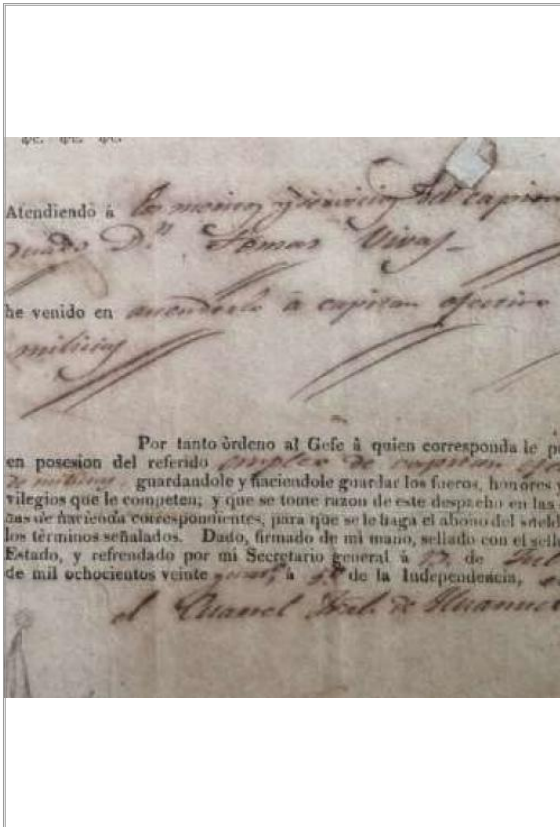 &c. &c. &c.
Atendiendo à los meritos y servicios del capitan
duado D.n Tomas Vivas
he venido en ascenderlo à capitan efectivo
milicias
Por tanto òrdeno al Gefe à quien corresponda le p
en posesion del referido empleo de capitan efe
de milicias, guardandole y haciendole guardar los fueros, honores y
vilegios que le competen; y que se tome razon de este despacho en las
nas de hacienda correspondientes, para que se le haga el abono del sueld
los términos señalados. Dado, firmado de mi mano, sellado con el sell
Estado, y refrendado por mi Secretario general à de Jul
de mil ochocientos veinte à de la Independencia,
el Cuartel Jral. de Huanuc